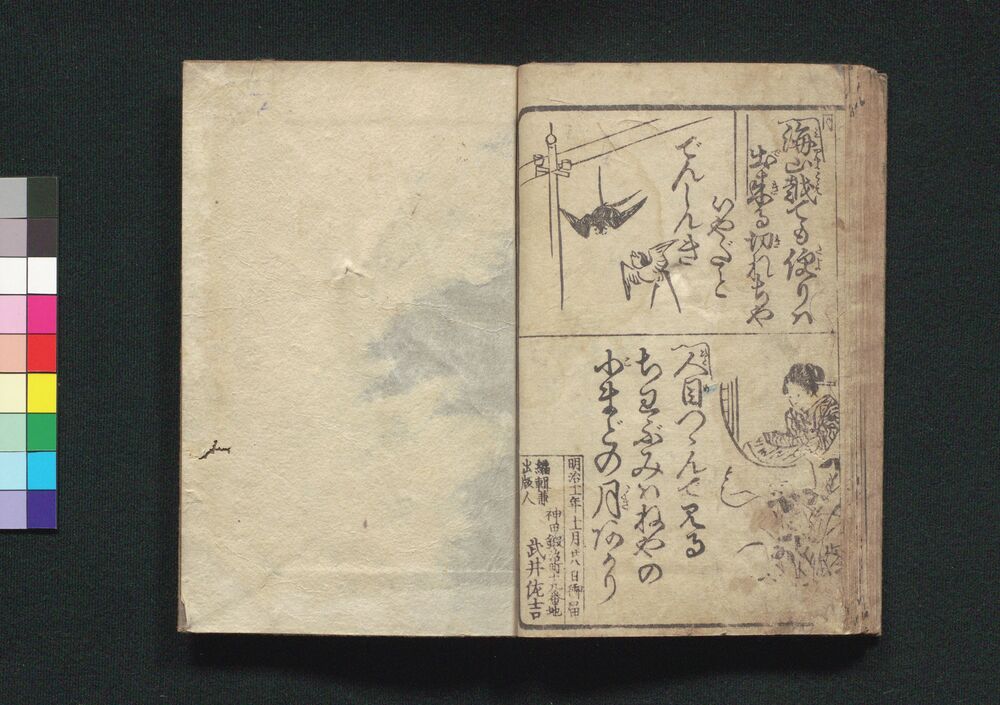 月
海山越ても便りハ
出来る切れちや
いやだと
でんしんき
人目つゝんで見る
ちわぶみハねやの
小まどの月あかり
明治十一年十一月廿八日御届
編輯兼
出版人
神田鍛冶町十九番地
武井佐吉